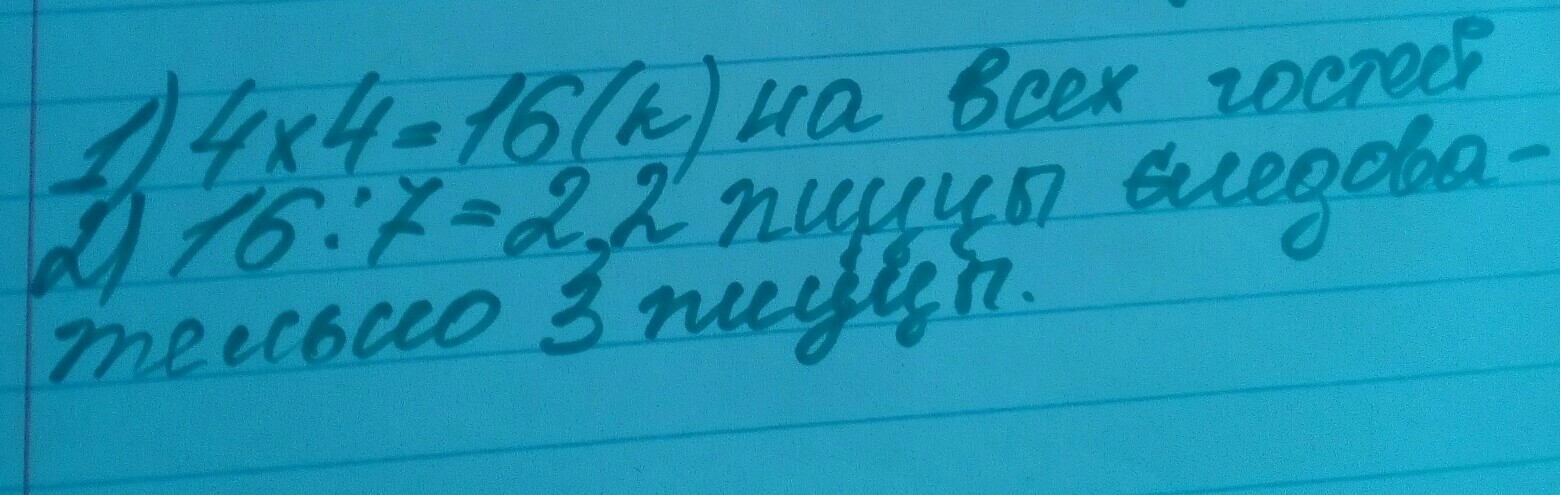 1) 4x4=16(к) на всех гостей
2) 16:7=2,2 пиццы следова-
тельно 3 пиццы.